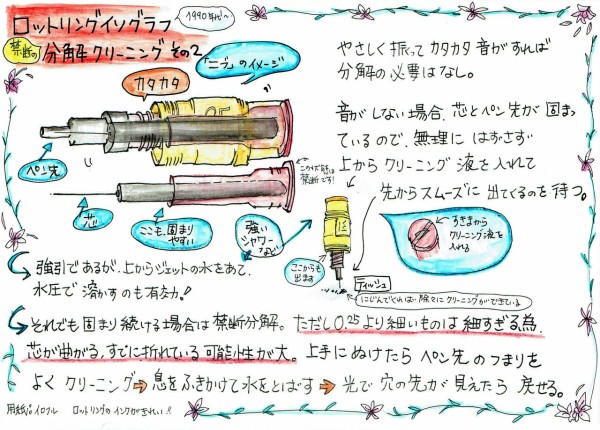 ロットリングイソグラフ
1990年代～
禁断の分解クリーニング その2
「ニブ」のイメージ
カタカタ
ペン先
芯
ここも固まりやすい
強いシャワーなど
禁断です!
やさしく振って カタカタ 音がすれば
分解の必要はなし。
音がしない場合、芯とペン先が固まっ
ているので、無理に はずさず
上から クリーニング 液を入れて
先からスムーズに 出てくるのを 待つ。
すきまから
クリーニング液を
入れる
ここからも
出ます
ティッシュ
にじんでとれば、除々に クリーニングができている
強引であるが、上からジェットの水をあて、
水圧で 溶かすのも有効!
それでも固まり続ける場合は禁断分解。ただし0.25より細いものは細すぎる為
芯が曲がる、すでに折れている可能性が大。上手にぬけたら ペン先のつまりを
よく クリーニング➡息をふきかけて水をとばす➡光で穴の先が見えたら 戻せる。
ロットリングのインクがきれい!!